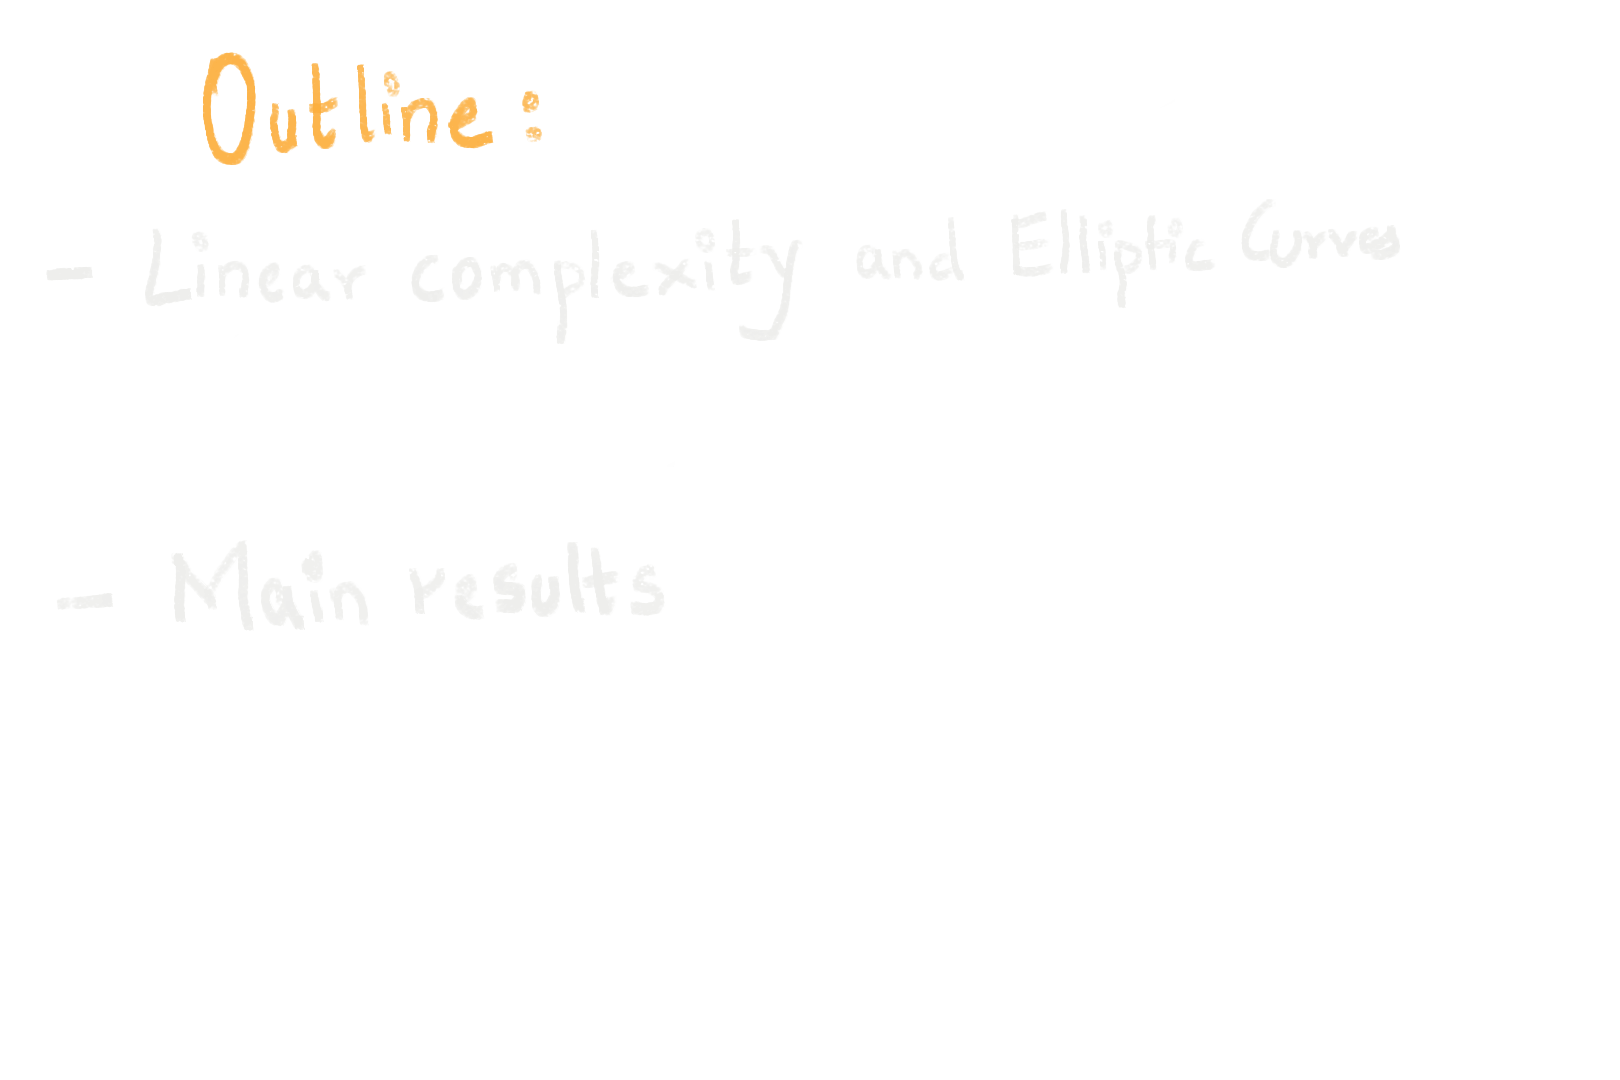 Outline:
- Linear complexity and Elliptic Curves
- Main results